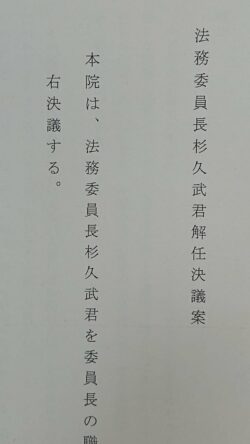 法務委員長杉久武君解任決議案
本院は、法務委員長杉久武君を委員長の職
右決議する。